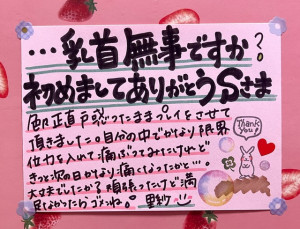 …乳首無事ですか?
初めましてありがとうSさま
正直戸惑ったままプレイをさせて
頂きました。自分の中でかなり限界
位力を入れて痛ぶってみたけれど
きっと次の日かなり痛くなったかと…。
大丈夫でしたか?頑張ったけど満
足しなかったらゴメンね。里紗
Thank you!